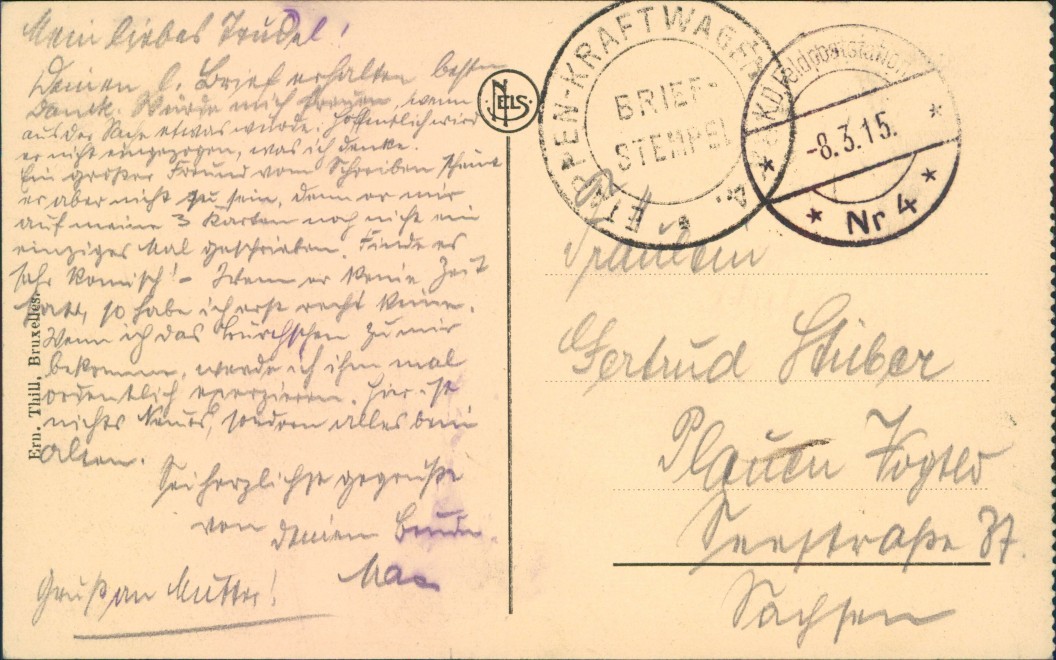 Mein liebes Trudel!
Deinen l. Brief erhalten besten
Dank. Würde mich freuen, wenn
aus der Sache etwas würde. Hoffentlich wird
er nicht eingezogen, was ich denke.
Ein großer Freund vom Schreiben scheint
er aber nicht zu sein, denn er mir
auf meine 3 Karten noch nicht ein
einziges Mal geschrieben. Finde es
sehr komisch! – Wenn er keine Zeit
hat, so habe ich erst recht keine.
Wenn ich das Bürschchen zu mir
bekomme, werde ich ihm mal
ordentlich exerzieren. Hier ist
nichts Neues, sondern alles beim
alten.
Sei herzlichst gegrüßt
von deinem Bruder
Max
Gruß an Mutter!
Ern. Thill, Bruxelles.
NELS
ETAPPEN-KRAFTWAGEN
BRIEF-
STEMPEL
4.
K.D. Feldpoststation
-8.3.15.
Nr 4
Fräulein
Gertrud Stüber
Plauen Vogtld
Seestraße 37.
Sachsen